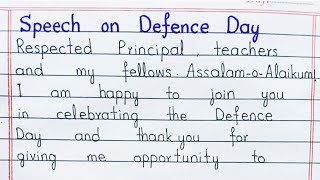 Speech on Defence Day
Respected Principal, teachers
and my fellows. Assalam-o-Alaikum!
I am happy to join you
in celebrating the Defence
Day and thank you for
giving me opportunity to